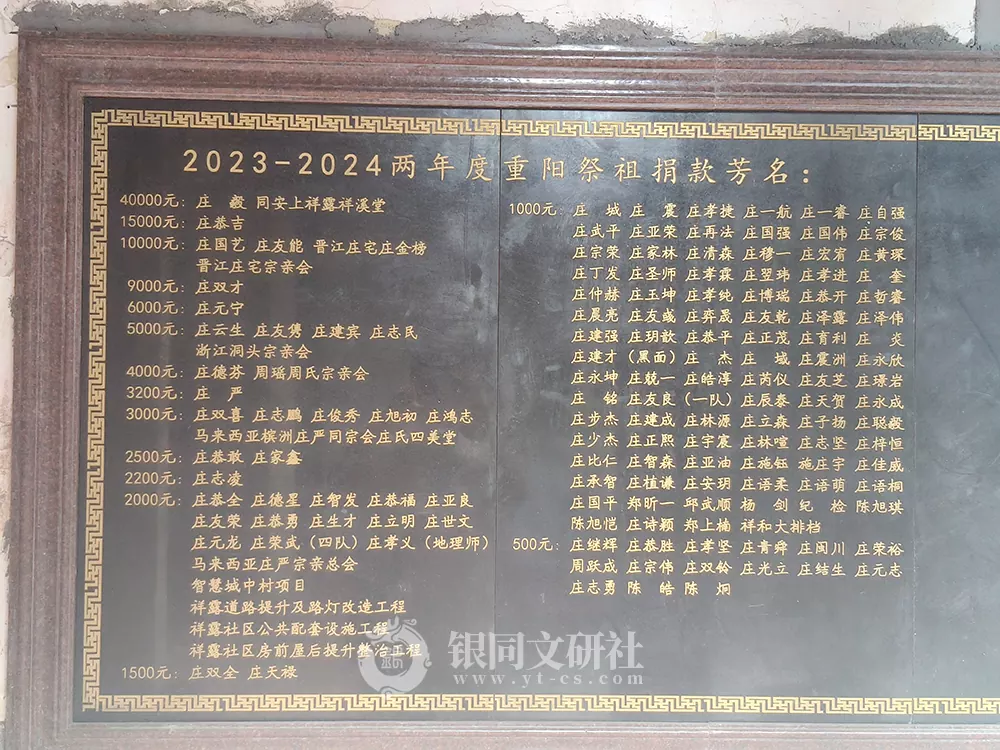 2023-2024两年度重阳祭祖捐款芳名：
40000元：庄 毅 同安上祥露祥溪堂
15000元：庄恭吉
10000元：庄国艺 庄友能 晋江庄宅庄金榜
晋江庄宅宗亲会
9000元：庄双才
6000元：庄元宁
5000元：庄云生 庄友镌 庄建宾 庄志民
浙江洞头宗亲会
4000元：庄德芬 周瑶周氏宗亲会
3200元：庄 严
3000元：庄双喜 庄志鹏 庄俊秀 庄旭初 庄鸿志
马来西亚槟洲庄严同宗会庄氏四美堂
2500元：庄恭敢 庄家鑫
2200元：庄志凌
2000元：庄恭全 庄德星 庄智发 庄恭福 庄亚良
庄友荣 庄恭勇 庄生才 庄立明 庄世文
庄元龙 庄荣武（四队）庄孝义（地理师）
马来西亚庄严宗亲总会
智慧城中村项目
祥露道路提升及路灯改造工程
祥露社区公共配套设施工程
祥露社区房前屋后提升整治工程
1500元：庄双全 庄天禄
1000元：庄 城 庄 震 庄孝捷 庄一航 庄一睿 庄自强
庄武平 庄亚荣 庄再法 庄国强 庄国伟 庄宗俊
庄宗荣 庄家林 庄清森 庄穆一 庄宏宥 庄黄琛
庄丁发 庄圣师 庄孝霖 庄翌玮 庄孝进 庄 奎
庄仲赫 庄玉坤 庄孝纯 庄博瑞 庄恭开 庄哲睿
庄晨亮 庄友彧 庄弈晟 庄友乾 庄泽露 庄泽伟
庄建强 庄玥歆 庄恭平 庄正茂 庄育利 庄 炎
庄建才（黑面）庄 杰 庄 域 庄震洲 庄永欣
庄永坤 庄兢一 庄皓淳 庄芮仪 庄友芝 庄璟岩
庄 铭 庄友良（一队）庄辰泰 庄天贺 庄永成
庄步杰 庄建成 庄林源 庄立森 庄子扬 庄聪毅
庄少杰 庄正熙 庄宇宸 庄林喧 庄志坚 庄梓恒
庄比仁 庄智森 庄亚油 庄施钰 施庄宇 庄佳威
庄承智 庄植谦 庄安玥 庄语柔 庄语萌 庄语桐
庄国平 郑昕一 邱武顺 杨 剑 纪 检 陈旭琪
陈旭恺 庄诗颖 郑上楠 祥和大排档
500元：庄继辉 庄恭胜 庄孝坚 庄青舜 庄闽川 庄荣裕
周跃成 庄宗伟 庄双铃 庄光立 庄结生 庄元志
庄志勇 陈 皓 陈 炯
银同文研社
www.yt-cs.com